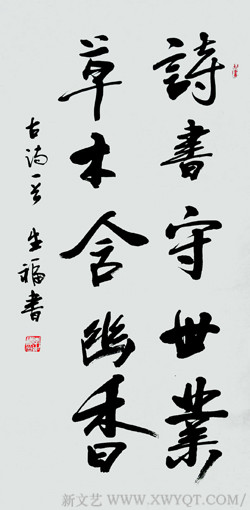 詩書守世業
草木含幽香
古詩一首 生福書
新文艺 WWW.XWYQT.COM/